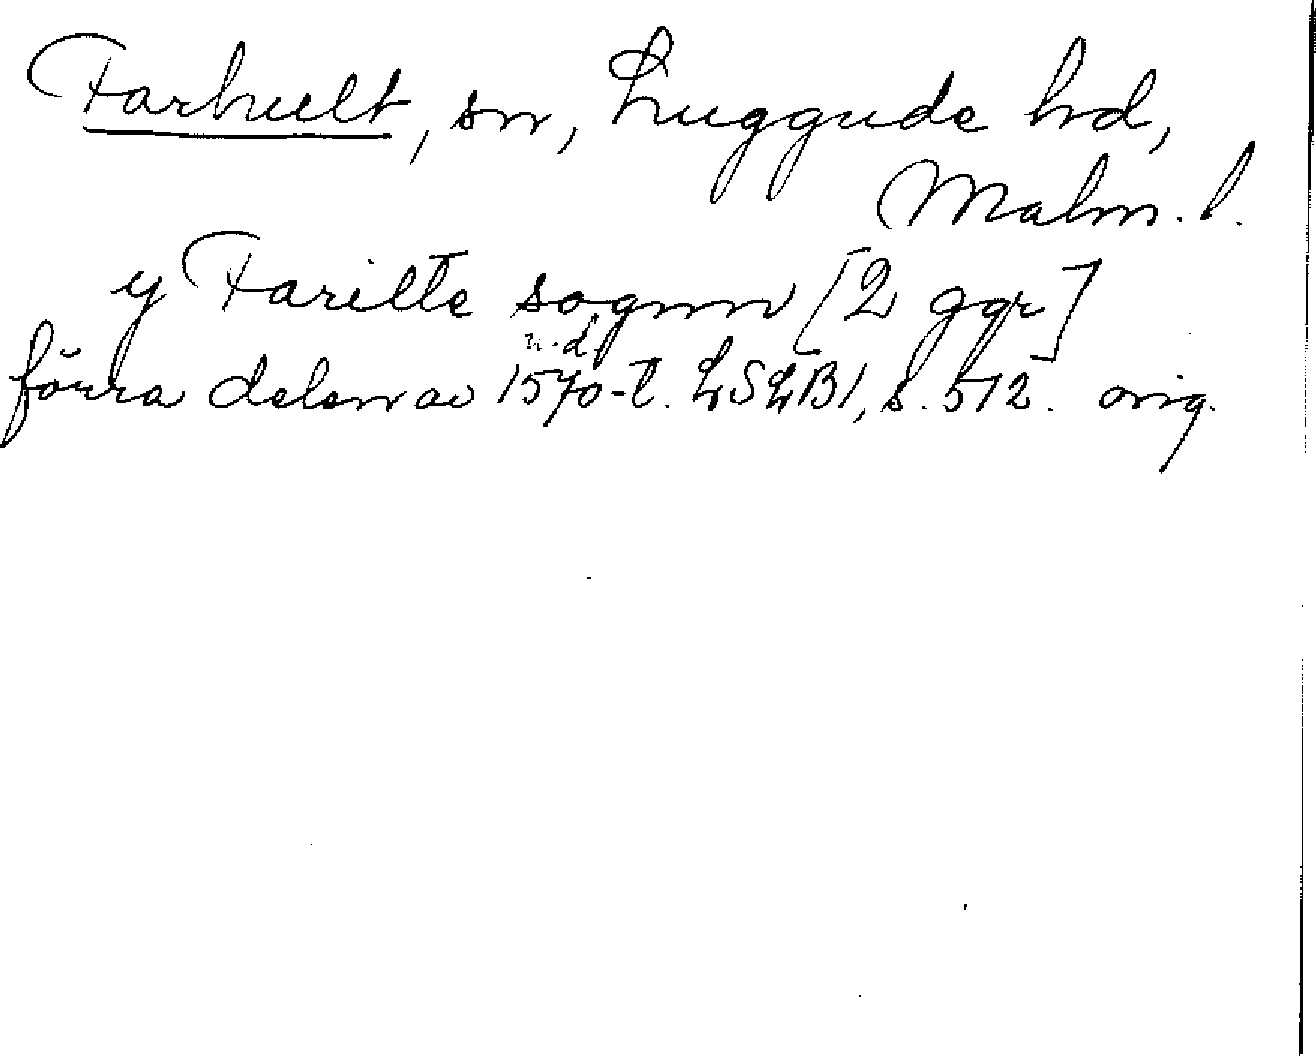 Farhult, sn, Luggude hd,
Malm. l.
y Farilte sognn [2 ggr]
u.d.
förra delen av 1570-t. LSLB1, s. 512. orig.